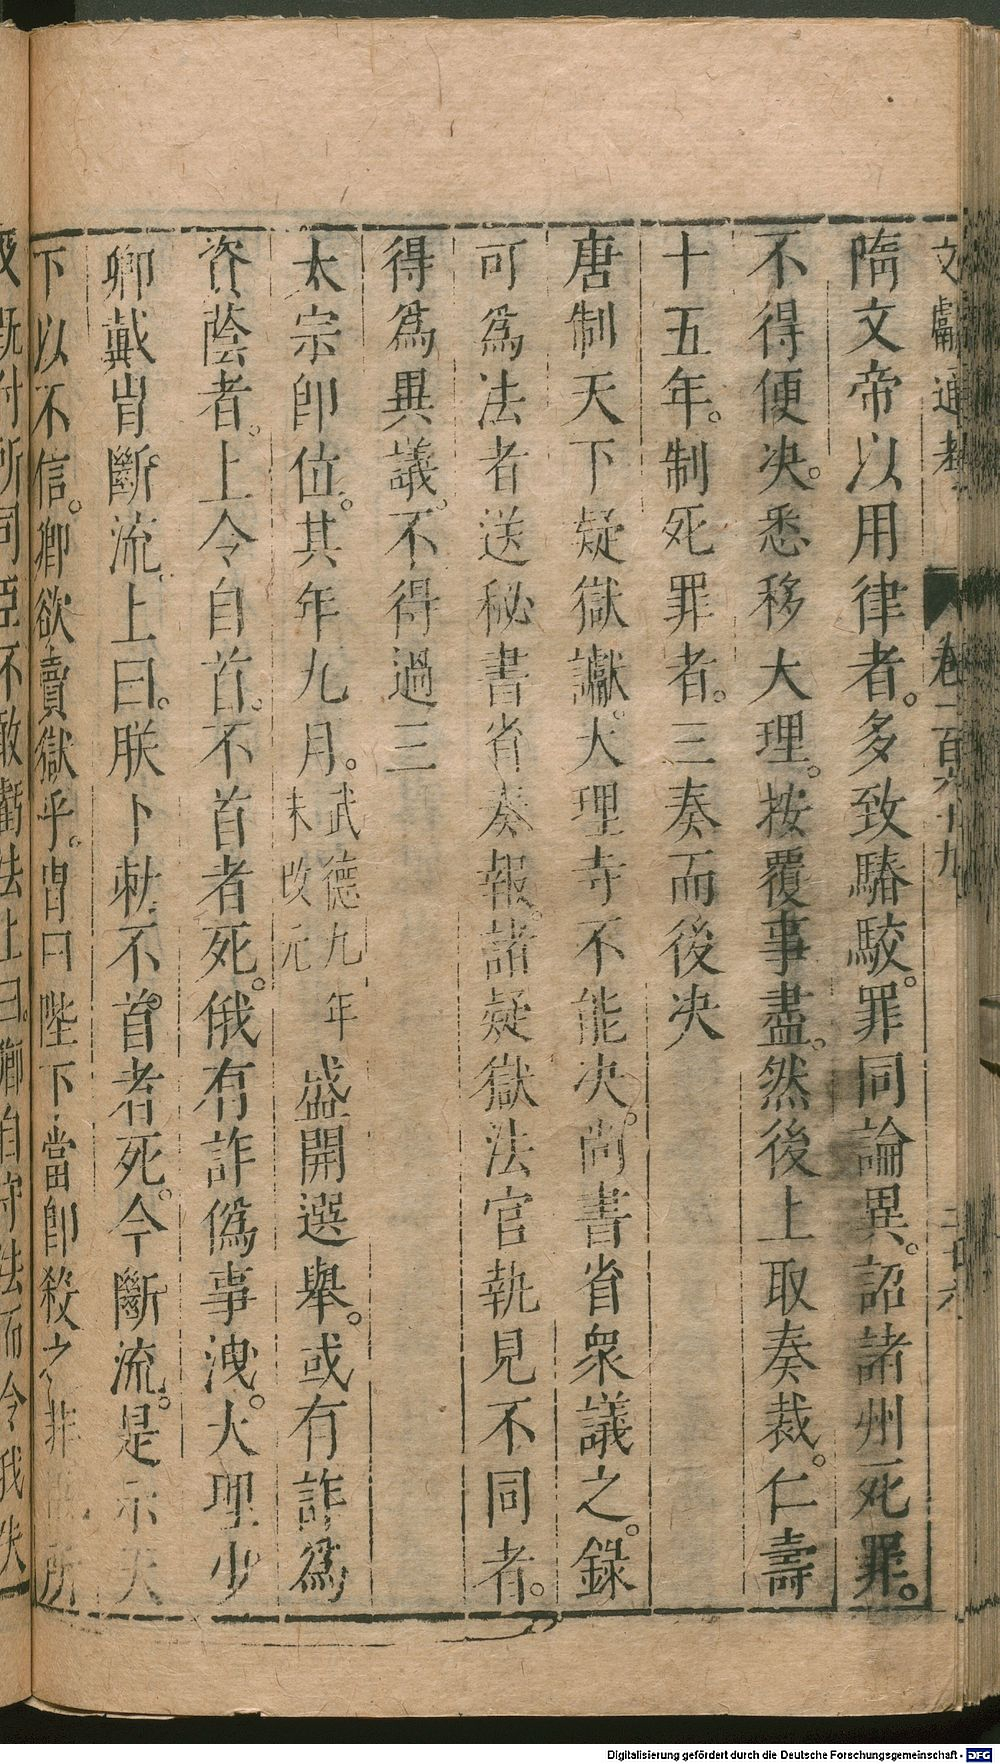 文獻通考 卷一百六十九 二十六
隋文帝以用律者。多致踳駮。罪同論異。詔諸州死罪。
不得便决。悉移大理。按覆事盡。然後上取奏裁。仁壽
十五年。制死罪者。三奏而後决
唐制天下疑獄讞。大理寺不能决。尚書省衆議之。錄
可爲法者送秘書省奏報。諸疑獄法官執見不同者。
得爲異議。不得過三
太宗卽位。其年九月。武德九年未改元盛開選舉。或有詐爲
資蔭者。上令自首。不首者死。俄有詐僞事洩。大理少
卿戴胄斷流。上曰。朕下勑不首者死。今斷流。是示天
下以不信。卿欲賣獄乎。胄曰陛下當卽殺之非臣所
及旣付所司臣不敢虧法上曰。卿自守法而令我失
Digitalisierung gefördert durch die Deutsche Forschungsgemeinschaft - DFG